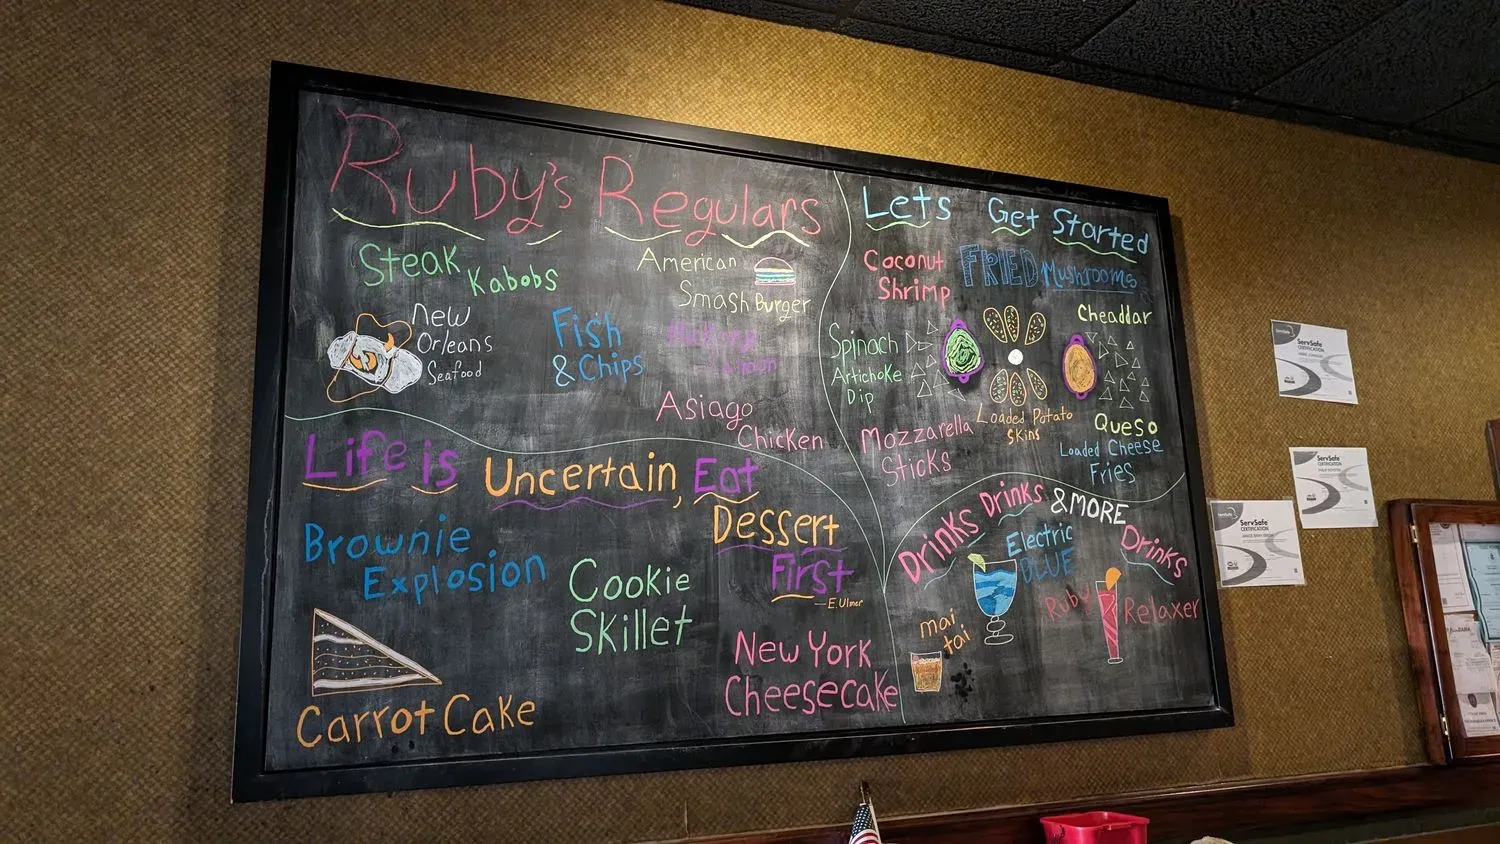 Ruby's Regulars
Steak Kabobs
American
Smash Burger
New
Orleans
Seafood
Fish
& Chips
Asiago
Chicken
Lets Get Started
Coconut
Shrimp
FRIED Mushrooms
Cheaddar
Queso
Spinach
Artichoke
Dip
Loaded Potato
Skins
Mozzarella
Sticks
Loaded Cheese
Fries
Life is Uncertain, Eat
Dessert
First
—E.Ulmer
Brownie
Explosion
Cookie
Skillet
Carrot Cake
New York
Cheesecake
Drinks Drinks & MORE Drinks
Electric
BLUE
mai
tai
Ruby Relaxer
ServSafe
CERTIFICATION
ServSafe
CERTIFICATION
ServSafe
CERTIFICATION